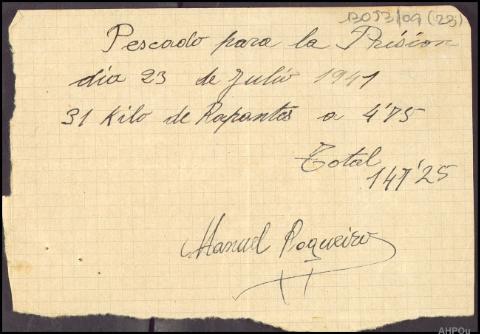 BOJ3/09 (28)
Pescado para la Prision
dia 23 de Julio 1941
31 Kilo de Rapantes a 4'75
Total
147'25
Manuel Roqueiro
AHPOu